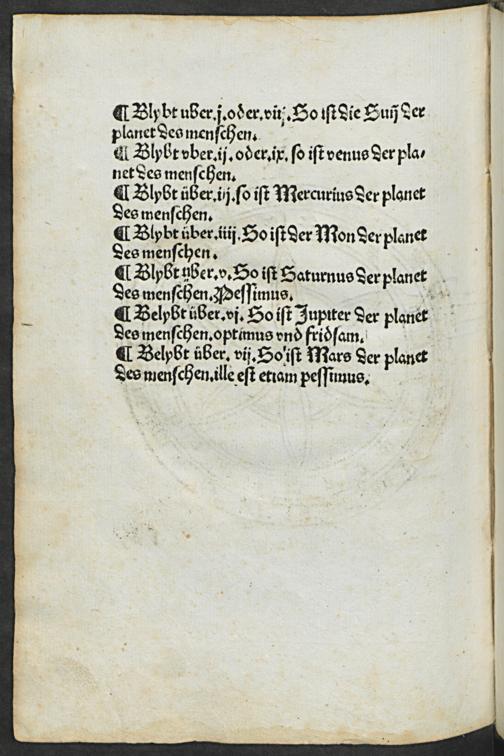 ¶ Blybt uber.j.oder.viij.So ist die Suñ der
planet des menschen.
¶ Blybt vber.ij.oder.ix.so ist venus der pla⸗
net des menschen.
¶ Blybt über.iij.so ist Mercurius der planet
des menschen.
¶ Blybt über.iiij.So ist der Mon der planet
des menschen.
¶ Blybt über.v.So ist Saturnus der planet
des menschen.Pessimus.
¶ Belybt über.vj.So ist Jupiter der planet
des menschen.optimus vnd fridsam.
¶ Belybt über.vij.So ist Mars der planet
des menschen.ille est etiam pessimus.